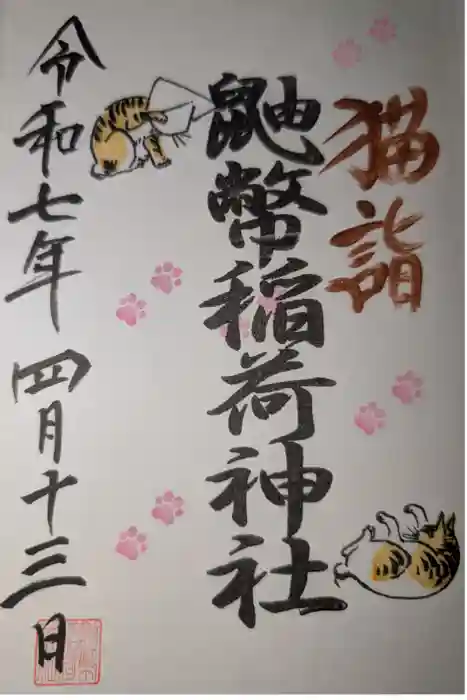 猫詣
鼬幣稲荷神社
令和七年 四月十三日